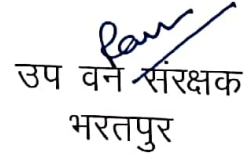 उप वन संरक्षक
भरतपुर